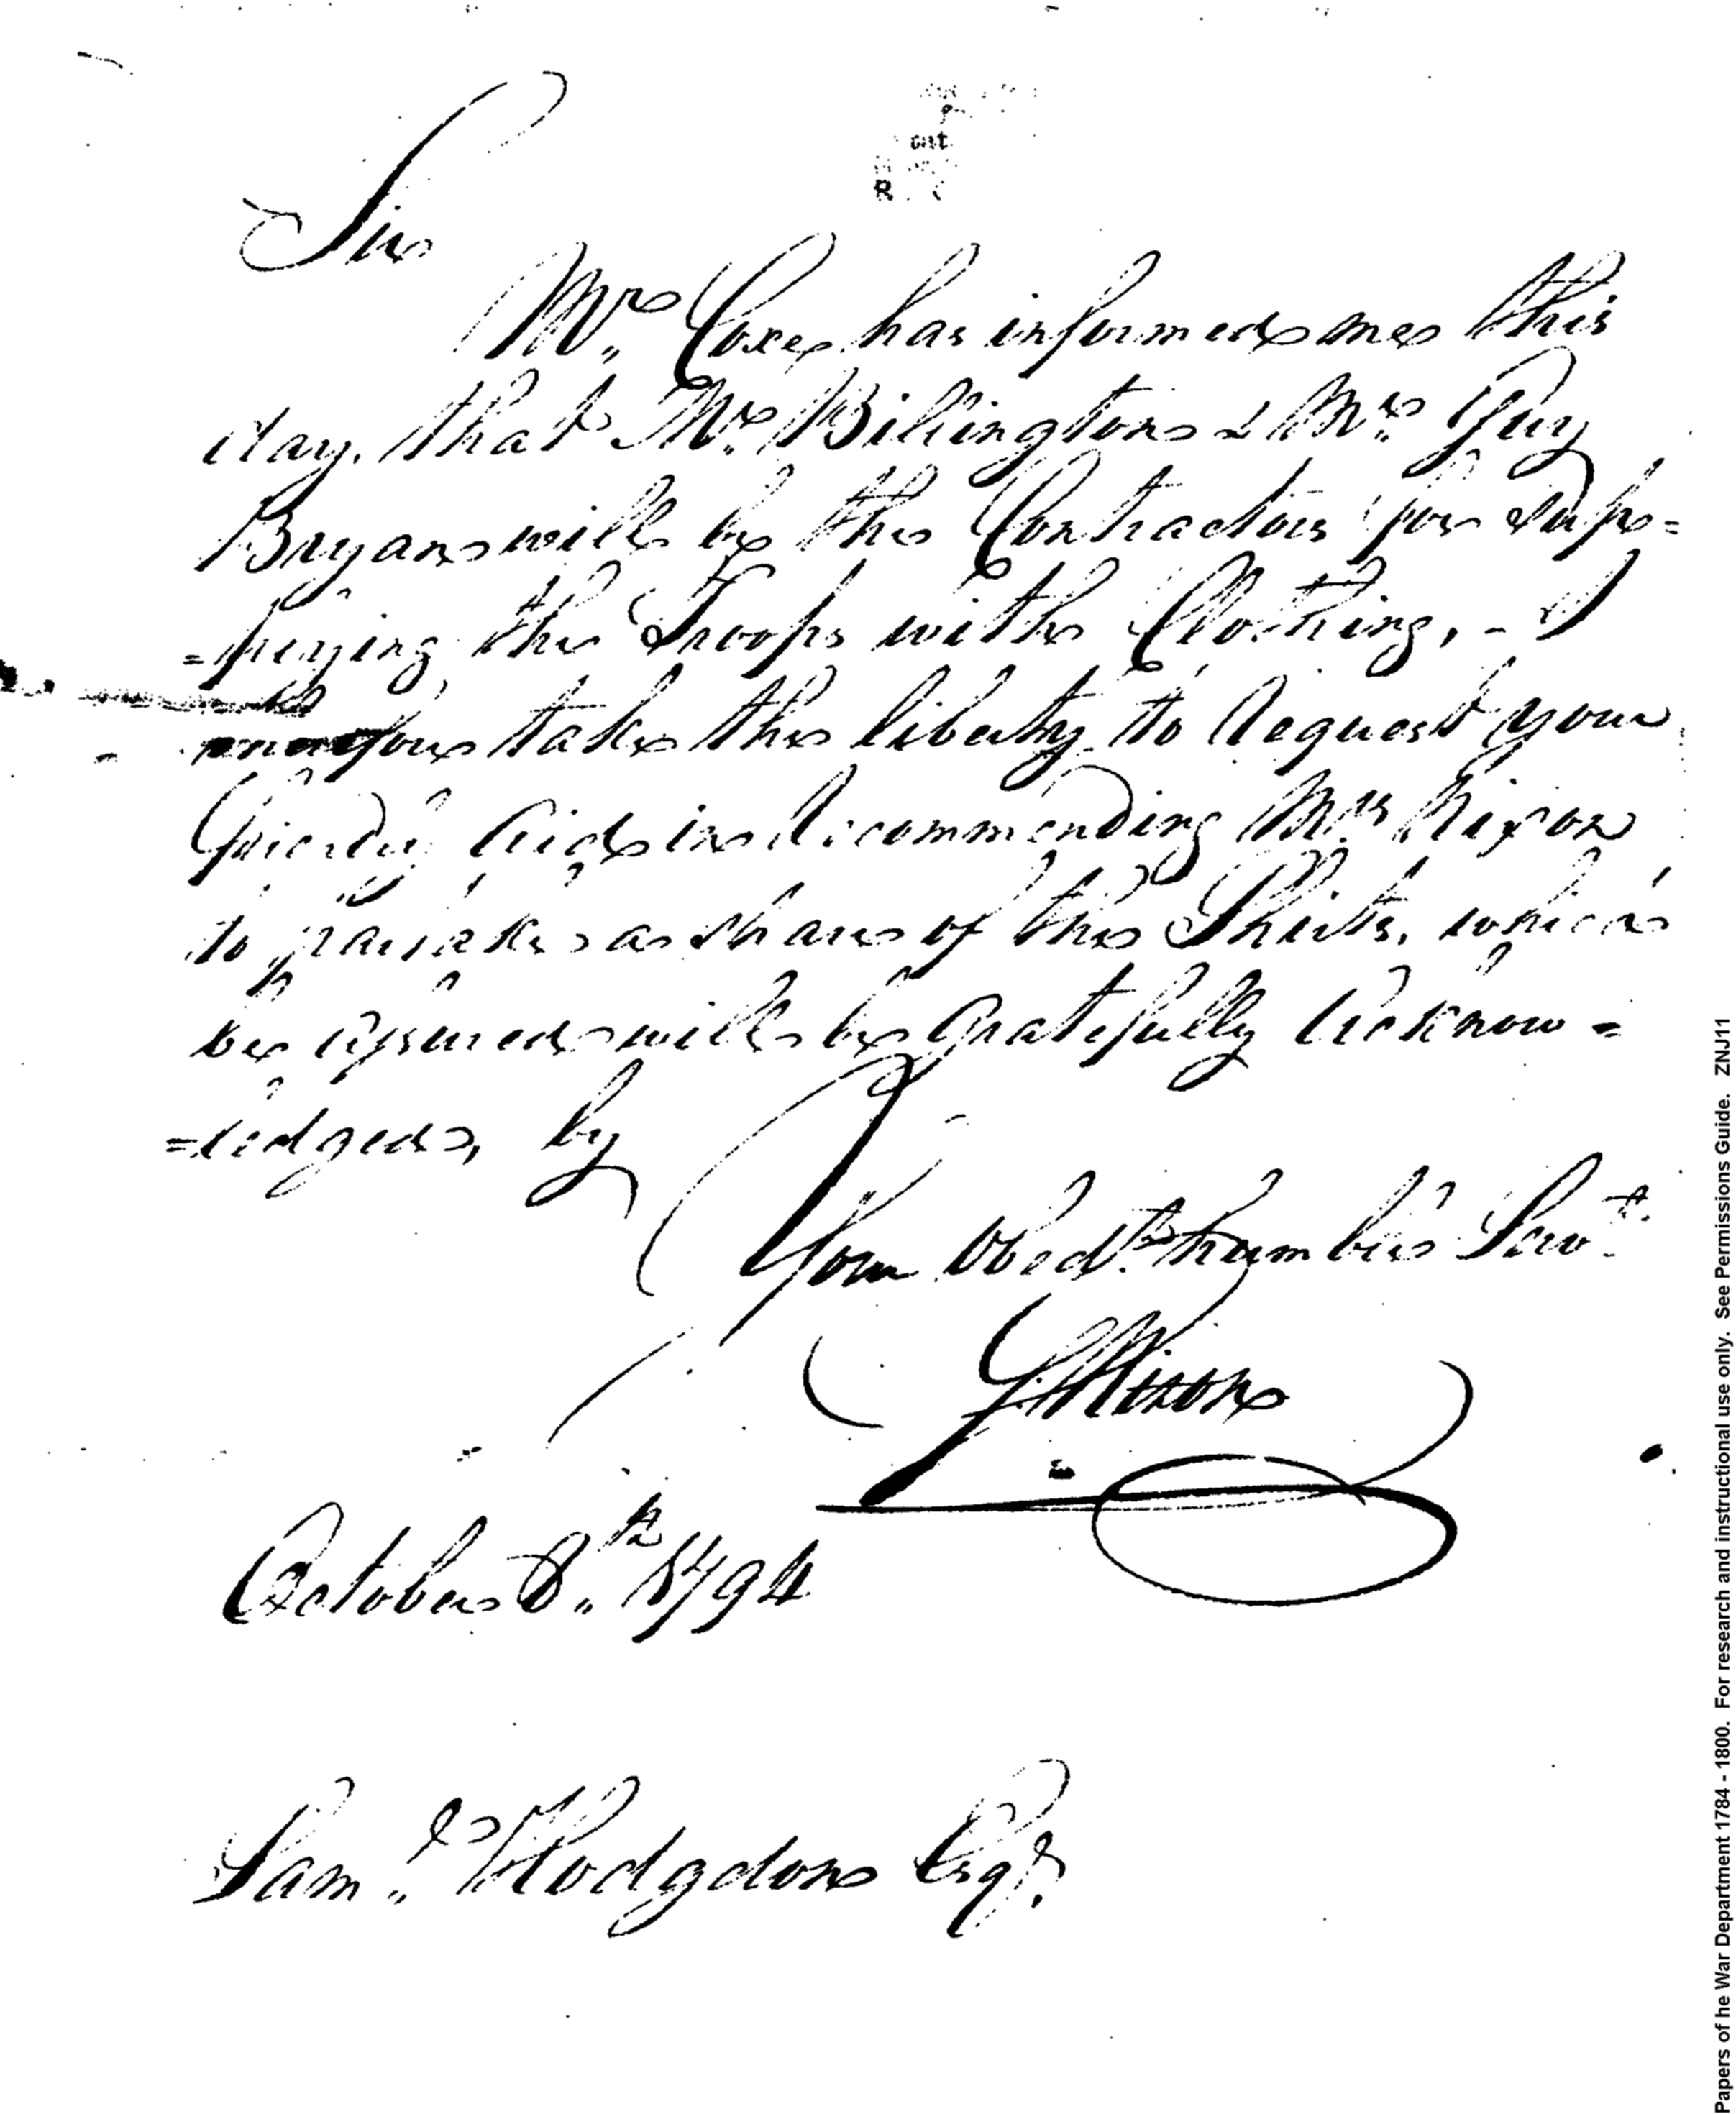 Sir
Mr. Coxe has informed me this
day, that Mr. Billington & Mr. Guy
Bryan will be the Contractors for Sup=
=plying the Troops with Clothing, - I
take the liberty to Request your
Friendly Aid in Recommending Mrs. Nixon
to partake a share of the Shirts, which
be assured will be Gratefully Acknow=
=ledged, by
Your Obedt. humble Servt.
Nixon
October 8th 1794
Saml. Hodgdon Esqr.
Papers of he War Department 1784 - 1800. For research and instructional use only. See Permissions Guide. ZNJ11